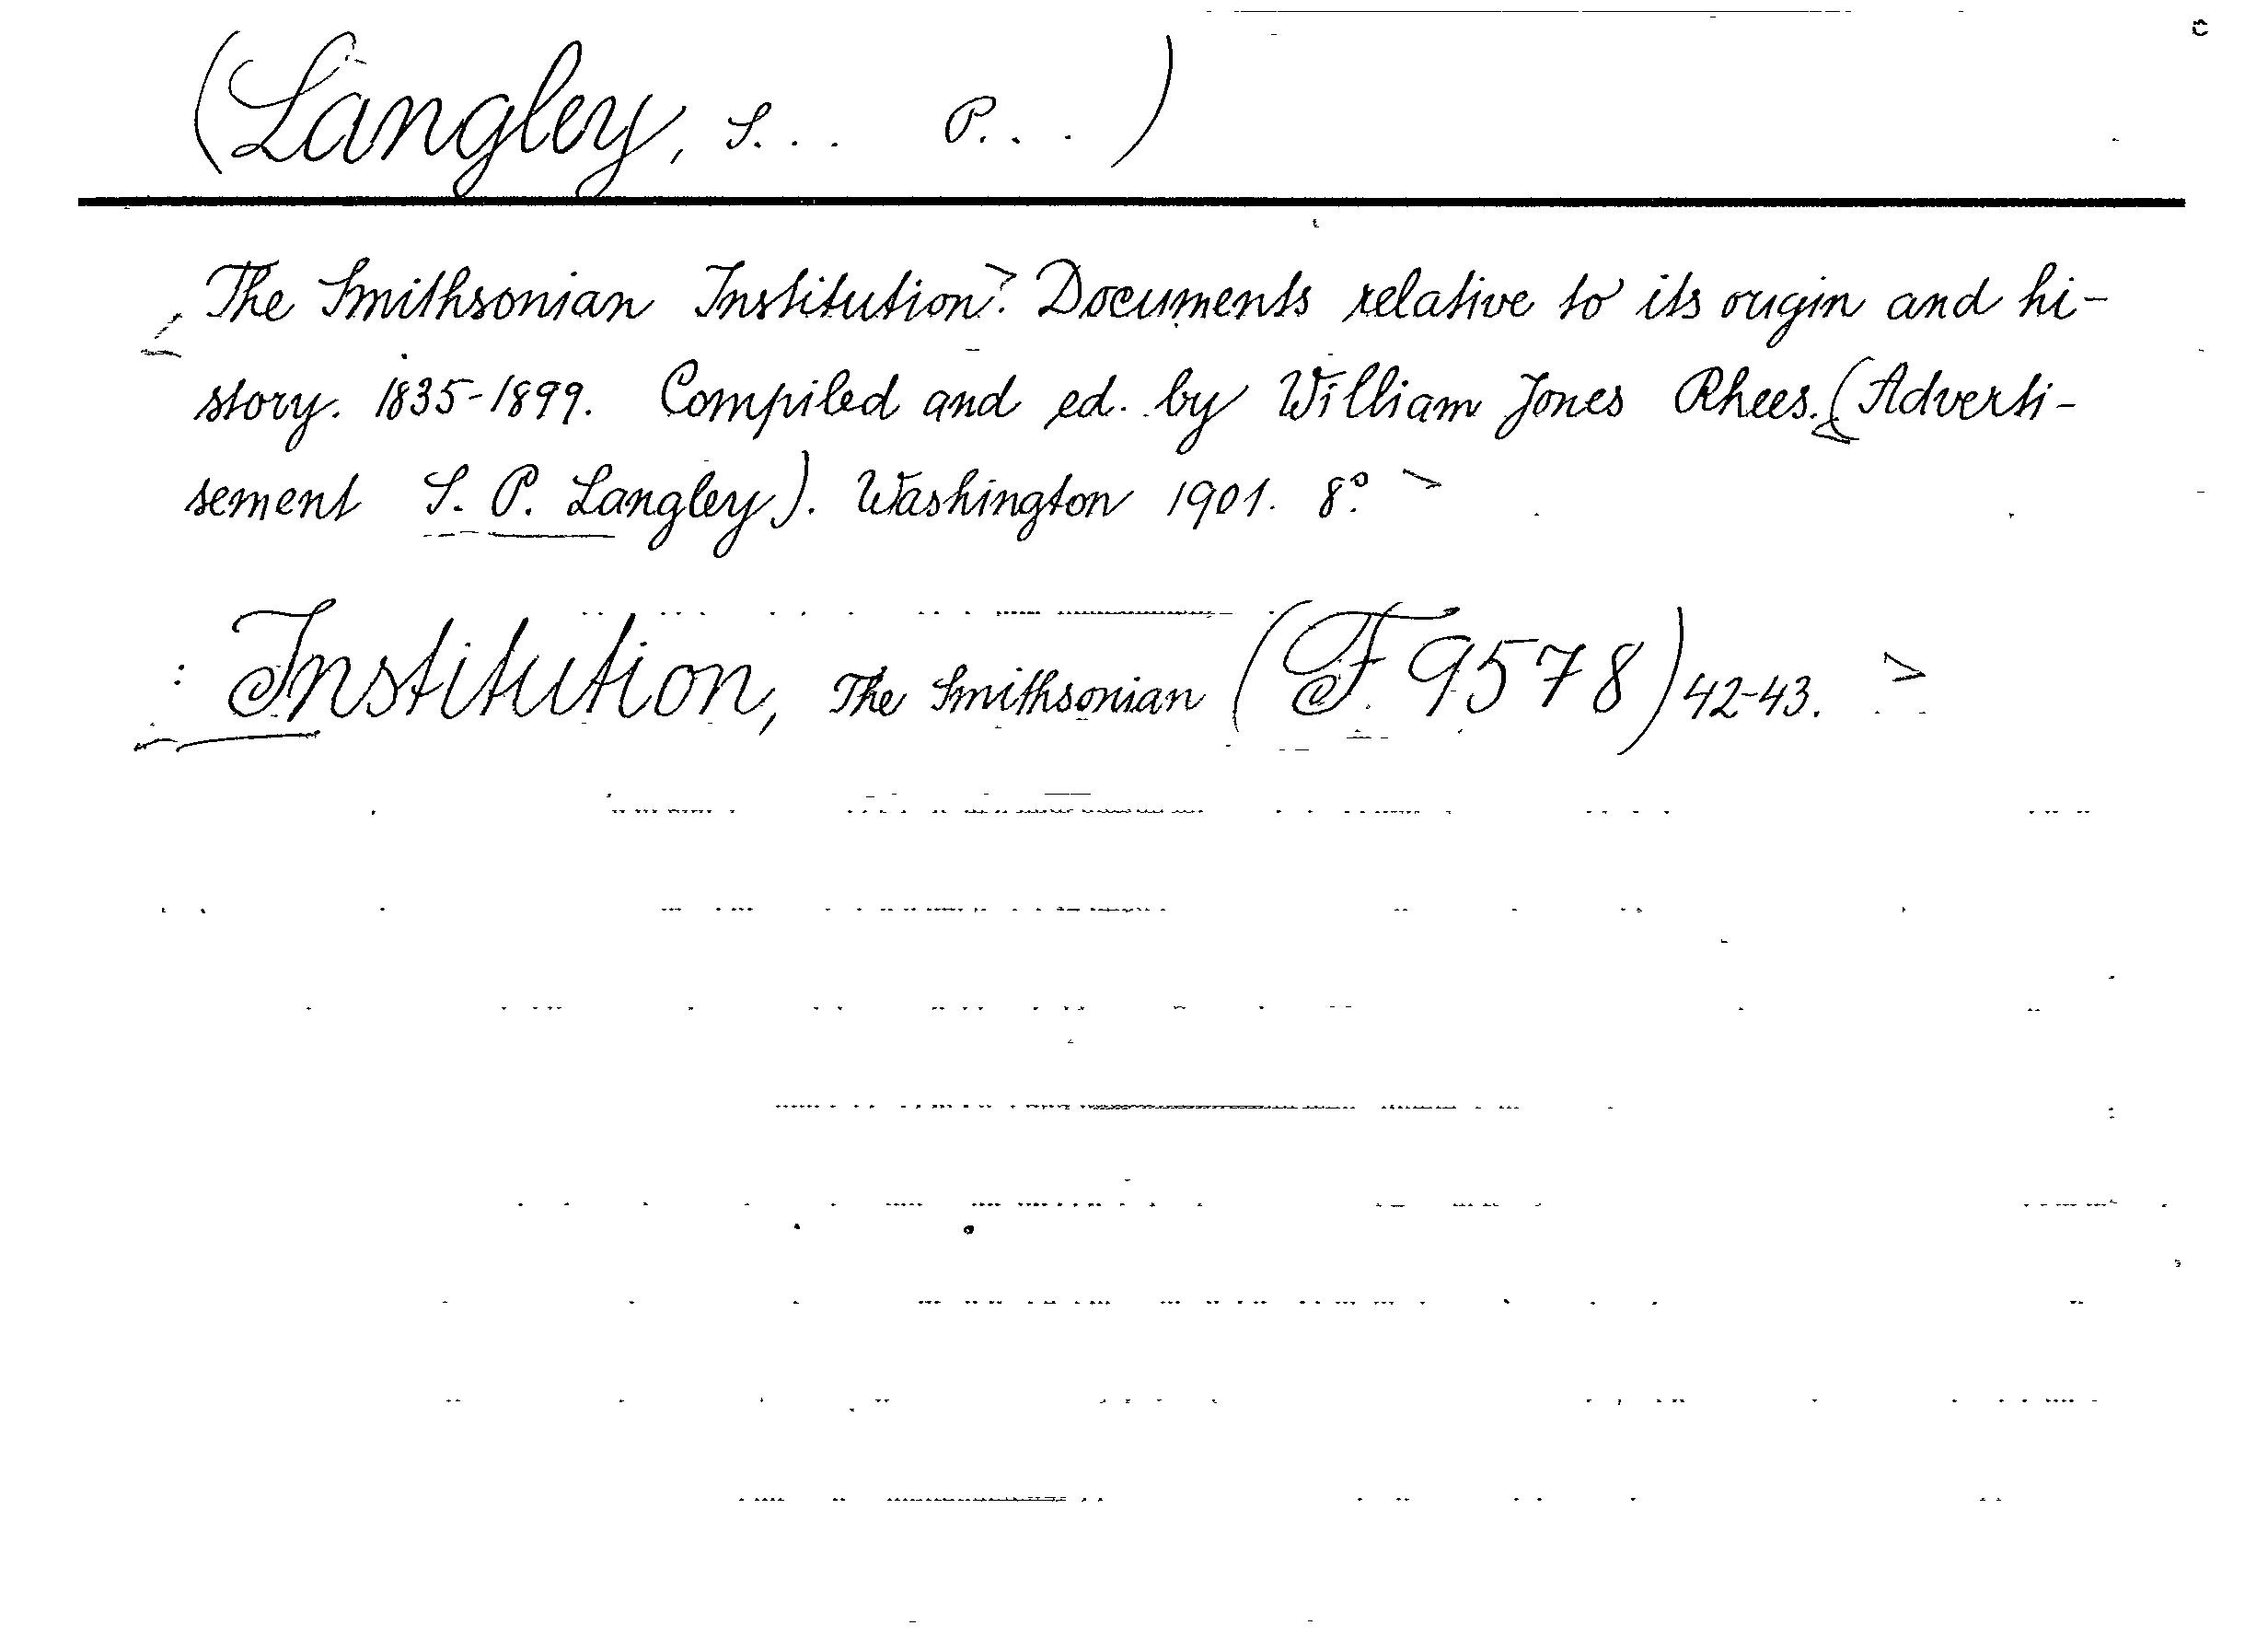 (Langley, S... P...)
The Smithsonian Institution. Documents relative to its origin and hi-
story. 1835-1899. Compiled and ed. by William Jones Rhees. (Adverti-
sement S. P. Langley). Washington 1901. 8°.
: Institution, The Smithsonian (F 9578) 42-43.